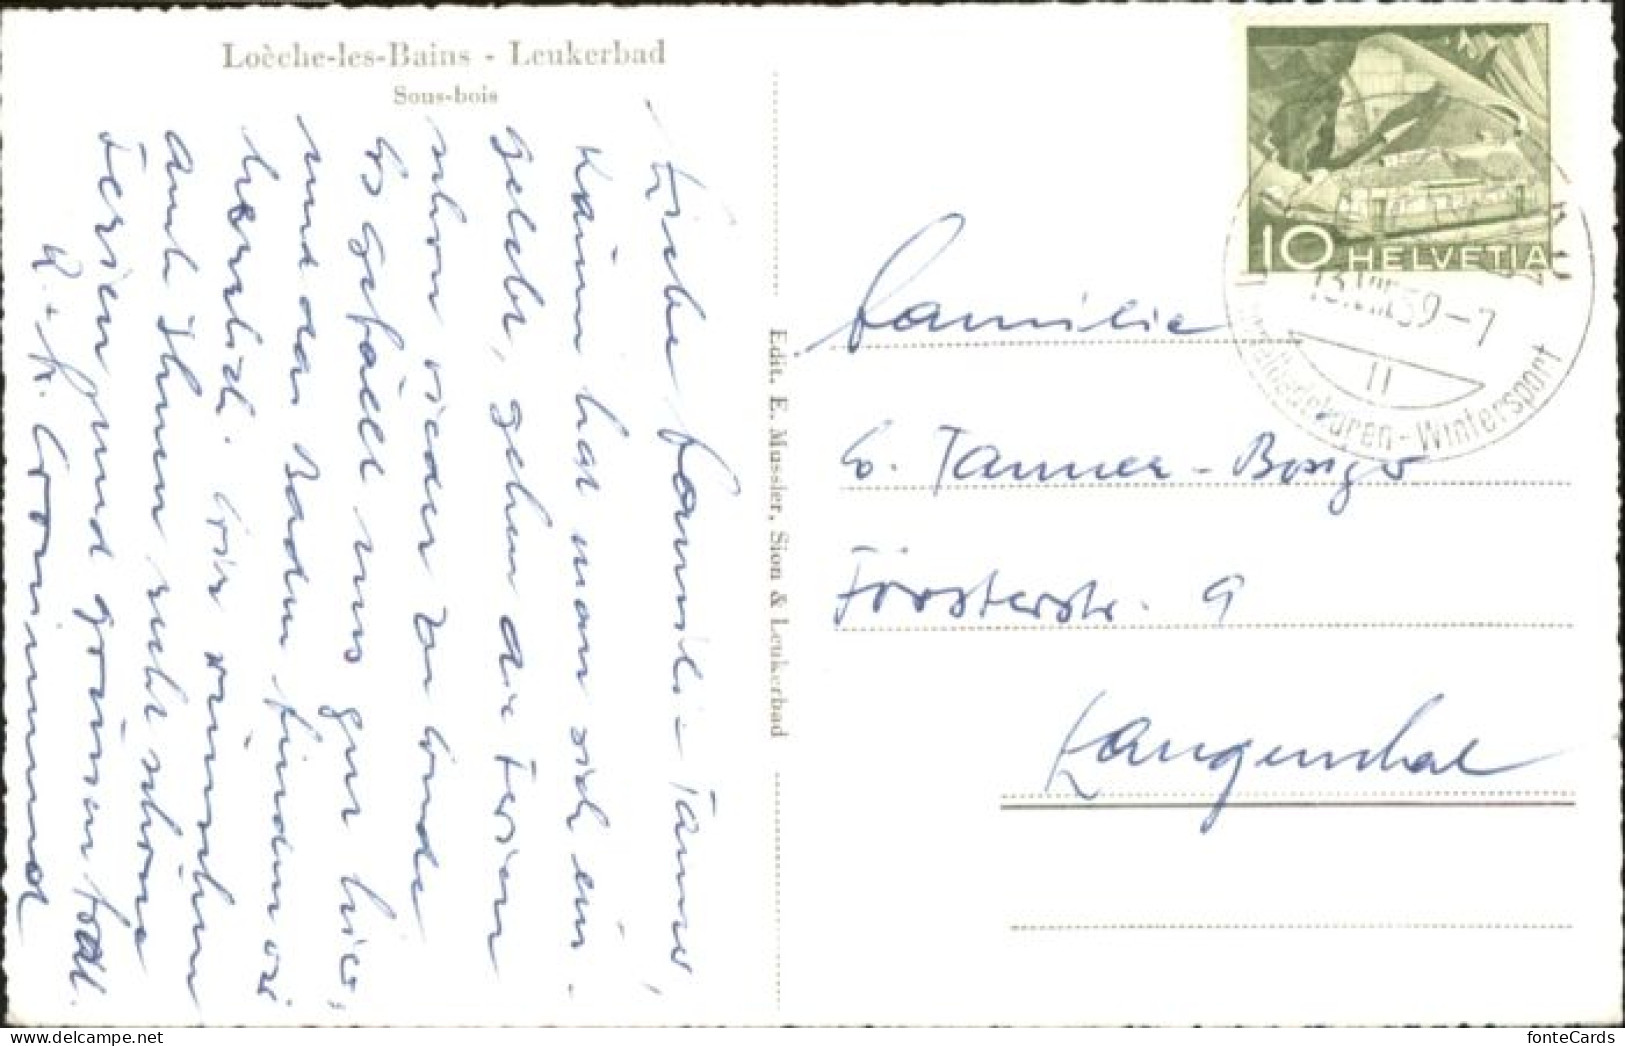 Loèche-les-Bains - Leukerbad
Sous-bois
Liebe Famili- Tanner,
Kaum hat man sich ein-
gelebt, gehen die Ferien
schon wieder zu Ende
Es gefällt uns gut hier,
und das Baden finden wir
herrlich. Wir wünschen
auch Ihnen recht schöne
Ferien und grüssen
K. + H.
Edit. E. Mussler, Sion & Leukerbad
10 HELVETIA
13.VIII.59-7
Badekuren-Wintersport
Familie
E. Tanner-
Försterstr. 9
Langenthal
fonteCards